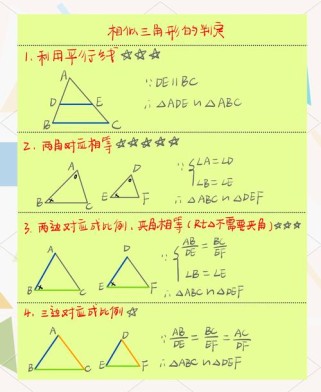 相似三角形的判定
1. 利用平行线 ☆☆☆
A
D E
B C
∵DE∥BC
∴△ADE∽△ABC
2. 两角对应相等 ☆☆☆☆☆
A
B C
D
E F
∵{∠A=∠D
∠B=∠E
∴△ABC∽△DEF
3. 两边对应成比例,夹角相等(Rt△不需要夹角)☆☆☆
A
B C
D
E F
∵{AB/DE=BC/EF
∠B=∠E
∴△ABC∽△DEF
4. 三边对应成比例 ☆
A
B C
D
E F
∵AB/DE=BC/EF=AC/DF
∴△ABC∽△DEF